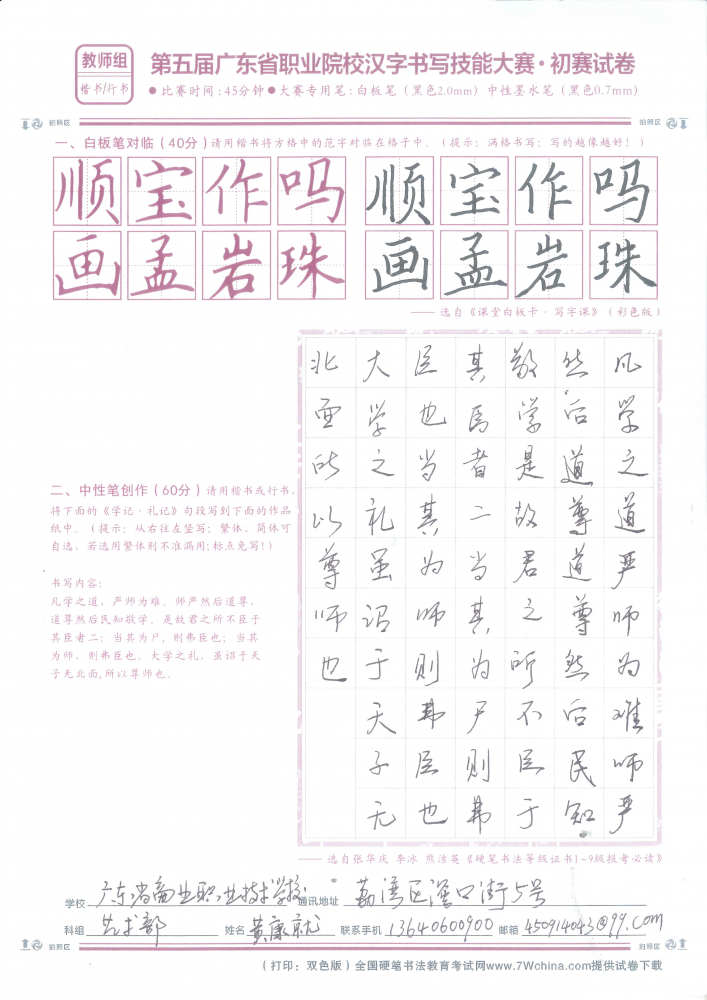 教师组
楷书/行书
第五届广东省职业院校汉字书写技能大赛·初赛试卷
●比赛时间:45分钟●大赛专用笔:白板笔（黑色2.0mm）中性墨水笔（黑色0.7mm）
拍照区
拍照区
一、白板笔对临（40分）请用楷书将方格中的范字对临在格子中。（提示：满格书写；写的越像越好！）
顺宝作吗 顺宝作吗
画孟岩珠 画孟岩珠
——选自《课堂白板卡·写字课》（彩色版）
二、中性笔创作（60分）请用楷书或行书，
将下面的《学记·礼记》句段写到下面的作品
纸中。（提示：从右往左竖写；繁体、简体可
自选，若选用繁体则不准漏用;标点免写!）
书写内容:
凡学之道，严师为难。师严然后道尊，
道尊然后民知敬学。是故君之所不臣于
其臣者二：当其为尸，则弗臣也；当其
为师，则弗臣也。大学之礼，虽诏于天
子无北面,所以尊师也。
凡学之道严师为难师严
然后道尊道尊然后民知
敬学是故君之所不臣于
其臣者二当其为尸则弗
臣也当其为师则弗臣也
大学之礼虽诏于天子无
北面所以尊师也
——选自张华庆 李冰 熊洁英《硬笔书法等级证书1~9级报考必读》
学校 广东省商业职业技术学校 通讯地址 荔湾区滘口街5号
科组 艺术部 姓名 黄康就 联系手机 13640600900 邮箱 450914043@qq.com
拍照区
拍照区
（打印：双色版）全国硬笔书法教育考试网www.7Wchina.com提供试卷下载